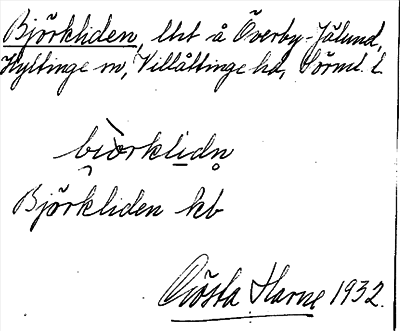 Björkliden, lht å Överby-Jälund,
Hyltinge sn, Villåttinge hd, Sörml. l.
biòrklidn
Björkliden kb
Gösta Harne 1932.